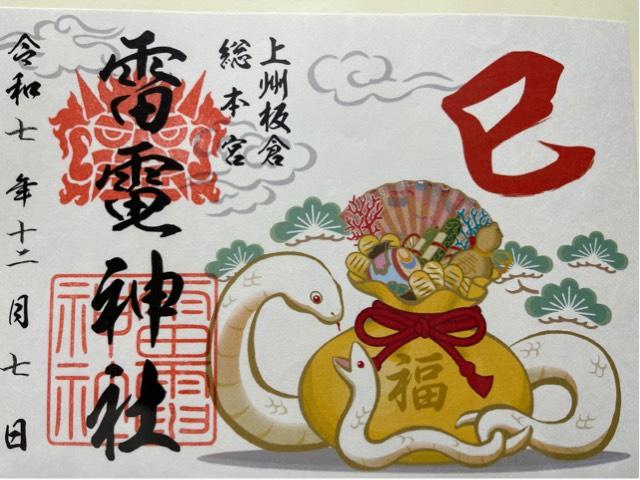 巳
上州板倉
総本宮
雷電神社
雷電
神社
令和七年十二月七日
福